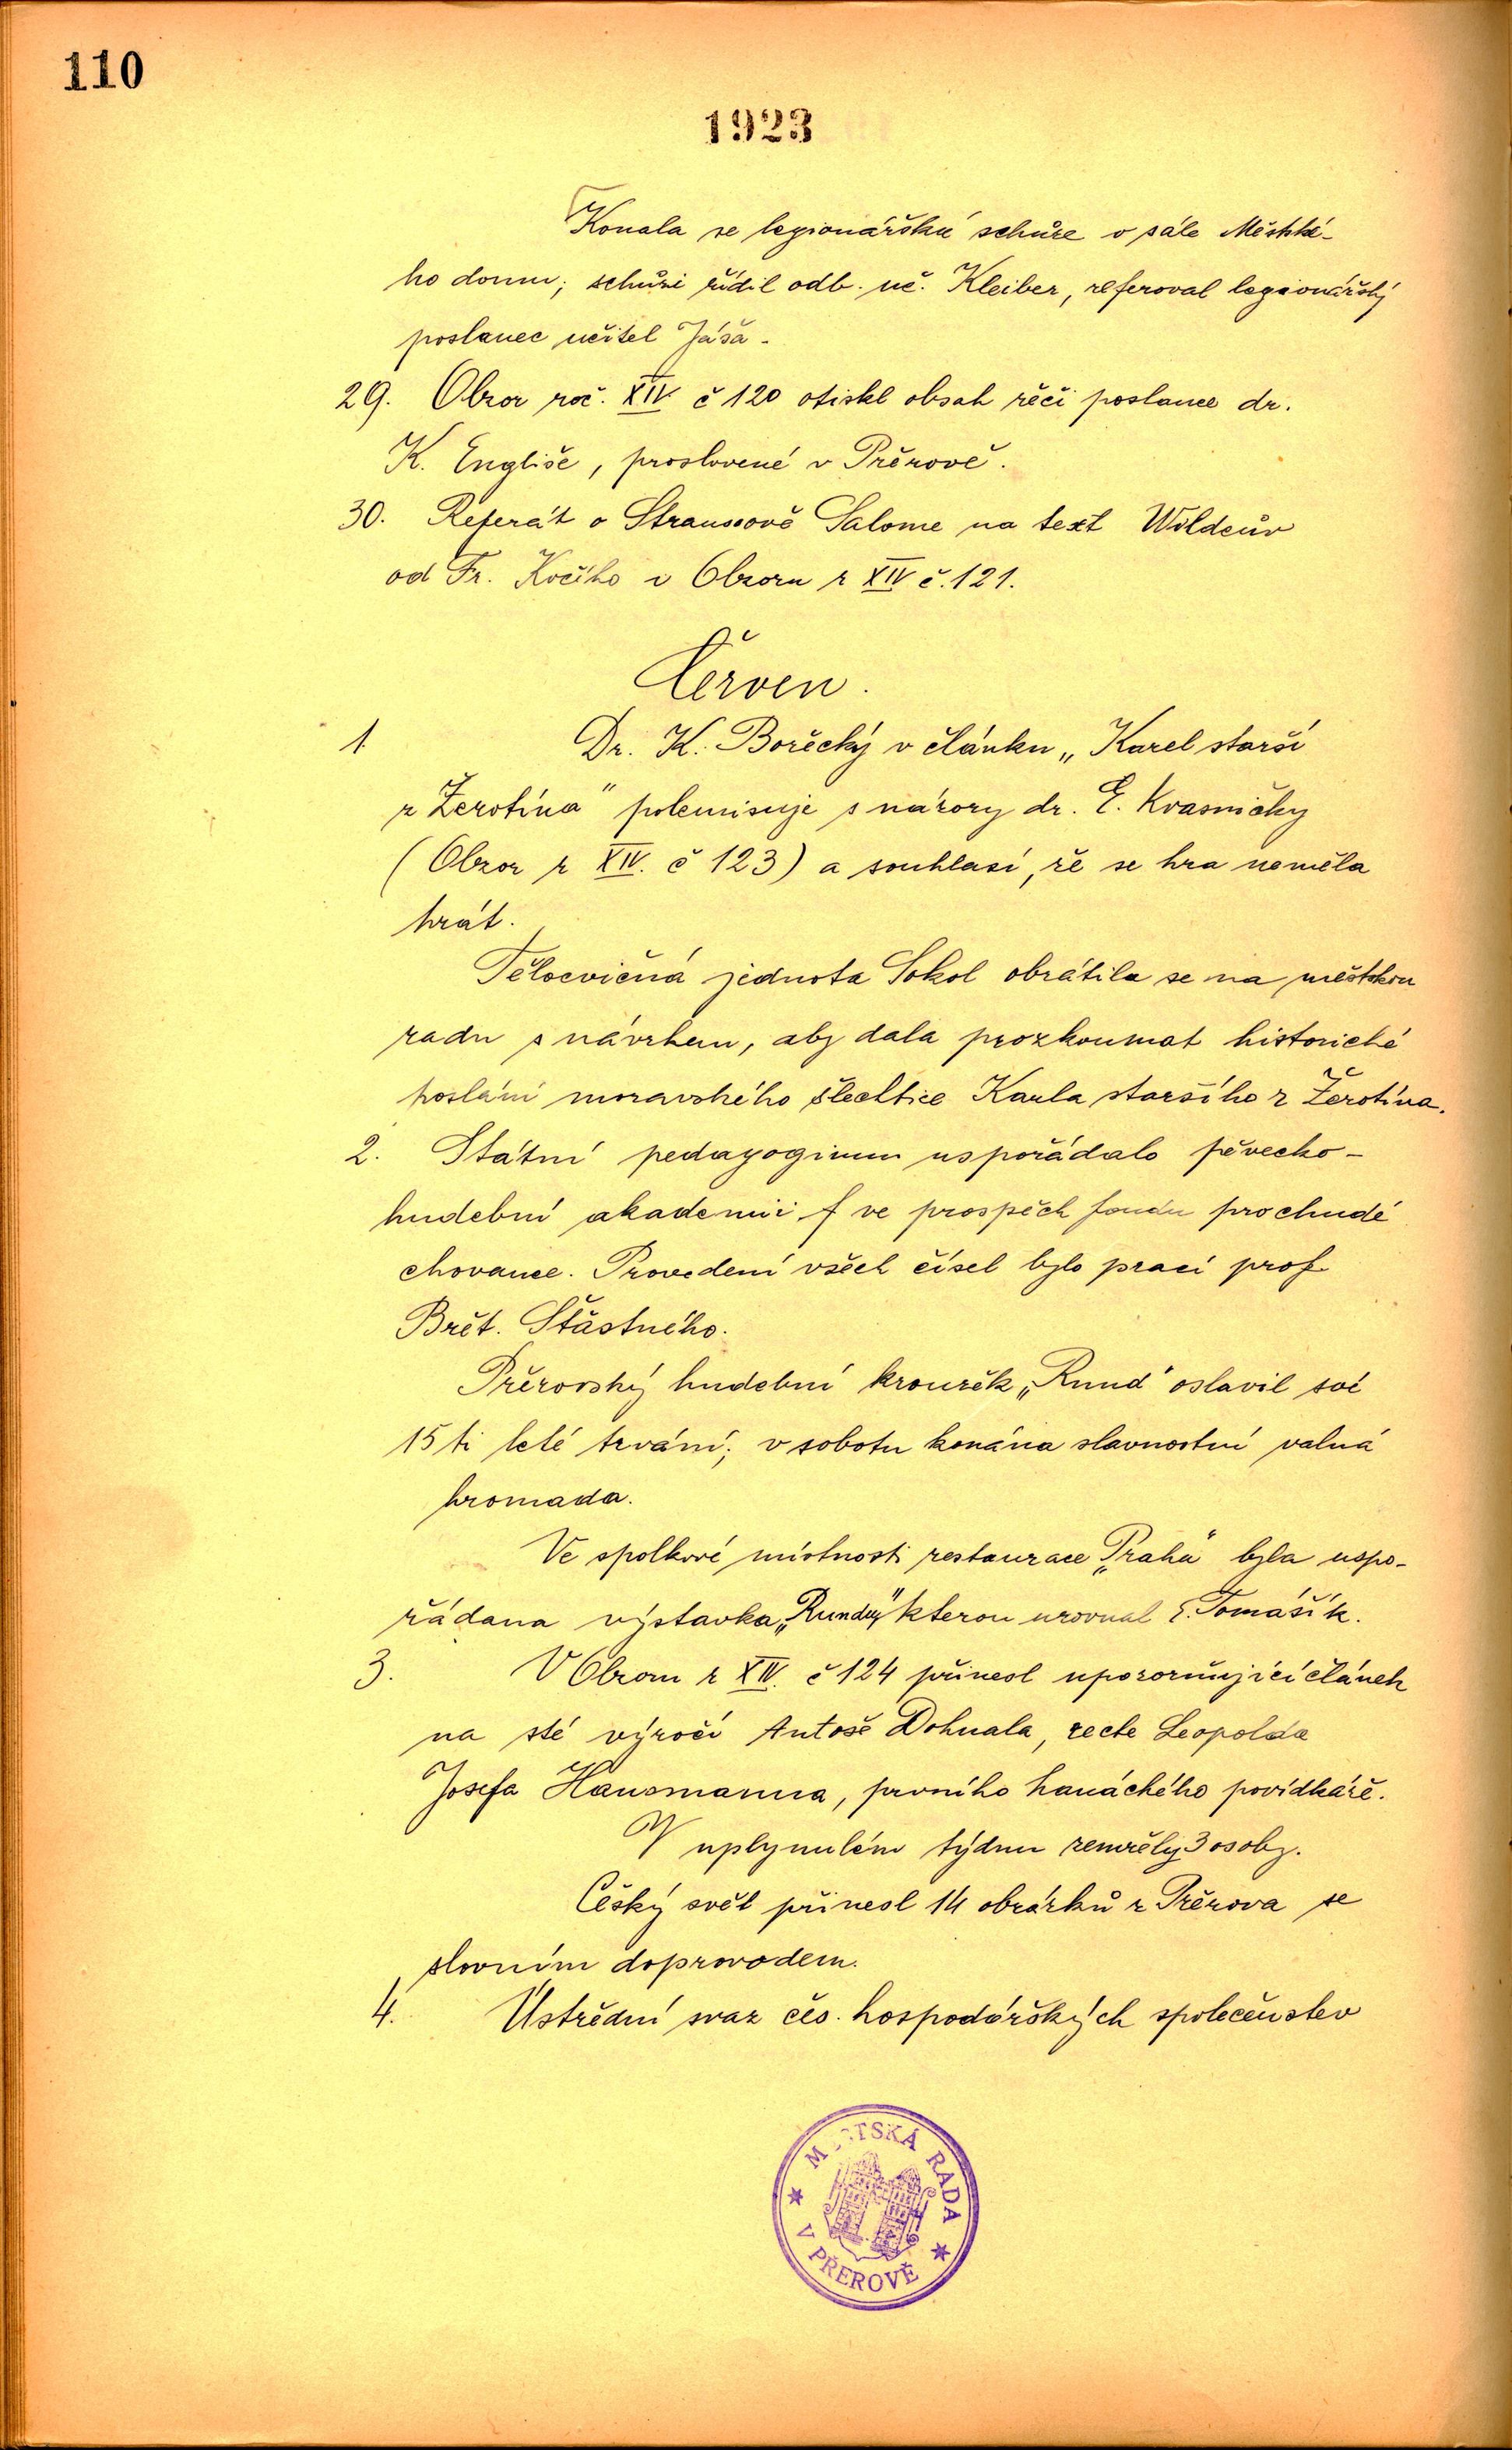 110
1923
Konala se legionářská schůze v sále Městské-
ho domu; schůzi řídil odb. uč. Kleiber, referoval legionářský
poslanec učitel Jáša.
29. Obzor roč. XIV č 120 otiskl obsah řeči poslance dr.
K. Engliše, proslovené v Přerově.
30. Referát o Straussově Salome na text Wildeův
od Fr. Kočího v Obzoru r XIV č. 121.
Červen.
1 Dr. K. Bořecký v článku „Karel starší
z Žerotína" polemisuje s názory dr. E. Kvasničky
(Obzor r XIV. č 123) a souhlasí, že se hra neměla
hrát.
Tělocvičná jednota Sokol obrátila se na městskou
radu s návrhem, aby dala prozkoumat historické
poslání moravského šlechtice Karla staršího z Žerotína.
2. Státní pedagogium uspořádalo pěvecko-
hudební akademii ve prospěch fondu pro chudé
chovance. Provedení všech čísel bylo prací prof.
Břet. Šťastného.
Přerovský hudební kroužek „Rund" oslavil své
15 ti leté trvání; v sobotu konána slavnostní valná
hromada.
Ve spolkové místnosti restaurace „Praha" byla uspo-
řádana výstavka „Rundu" kterou urovnal E. Tomášík.
3. V Obzoru r XIV. č 124 přinesl upozorňující článek
na sté výročí Antoše Dohnala, recte Leopolda
Josefa Hausmanna, prvního hanáckého povídkáře.
V uplynulém týdnu zemřely 3 osoby.
Český svět přinesl 14 obrázků z Přerova se
slovním doprovodem.
4. Ústřední svaz čes. hospodářských společenstev
MĚSTSKÁ RADA
V PŘEROVĚ